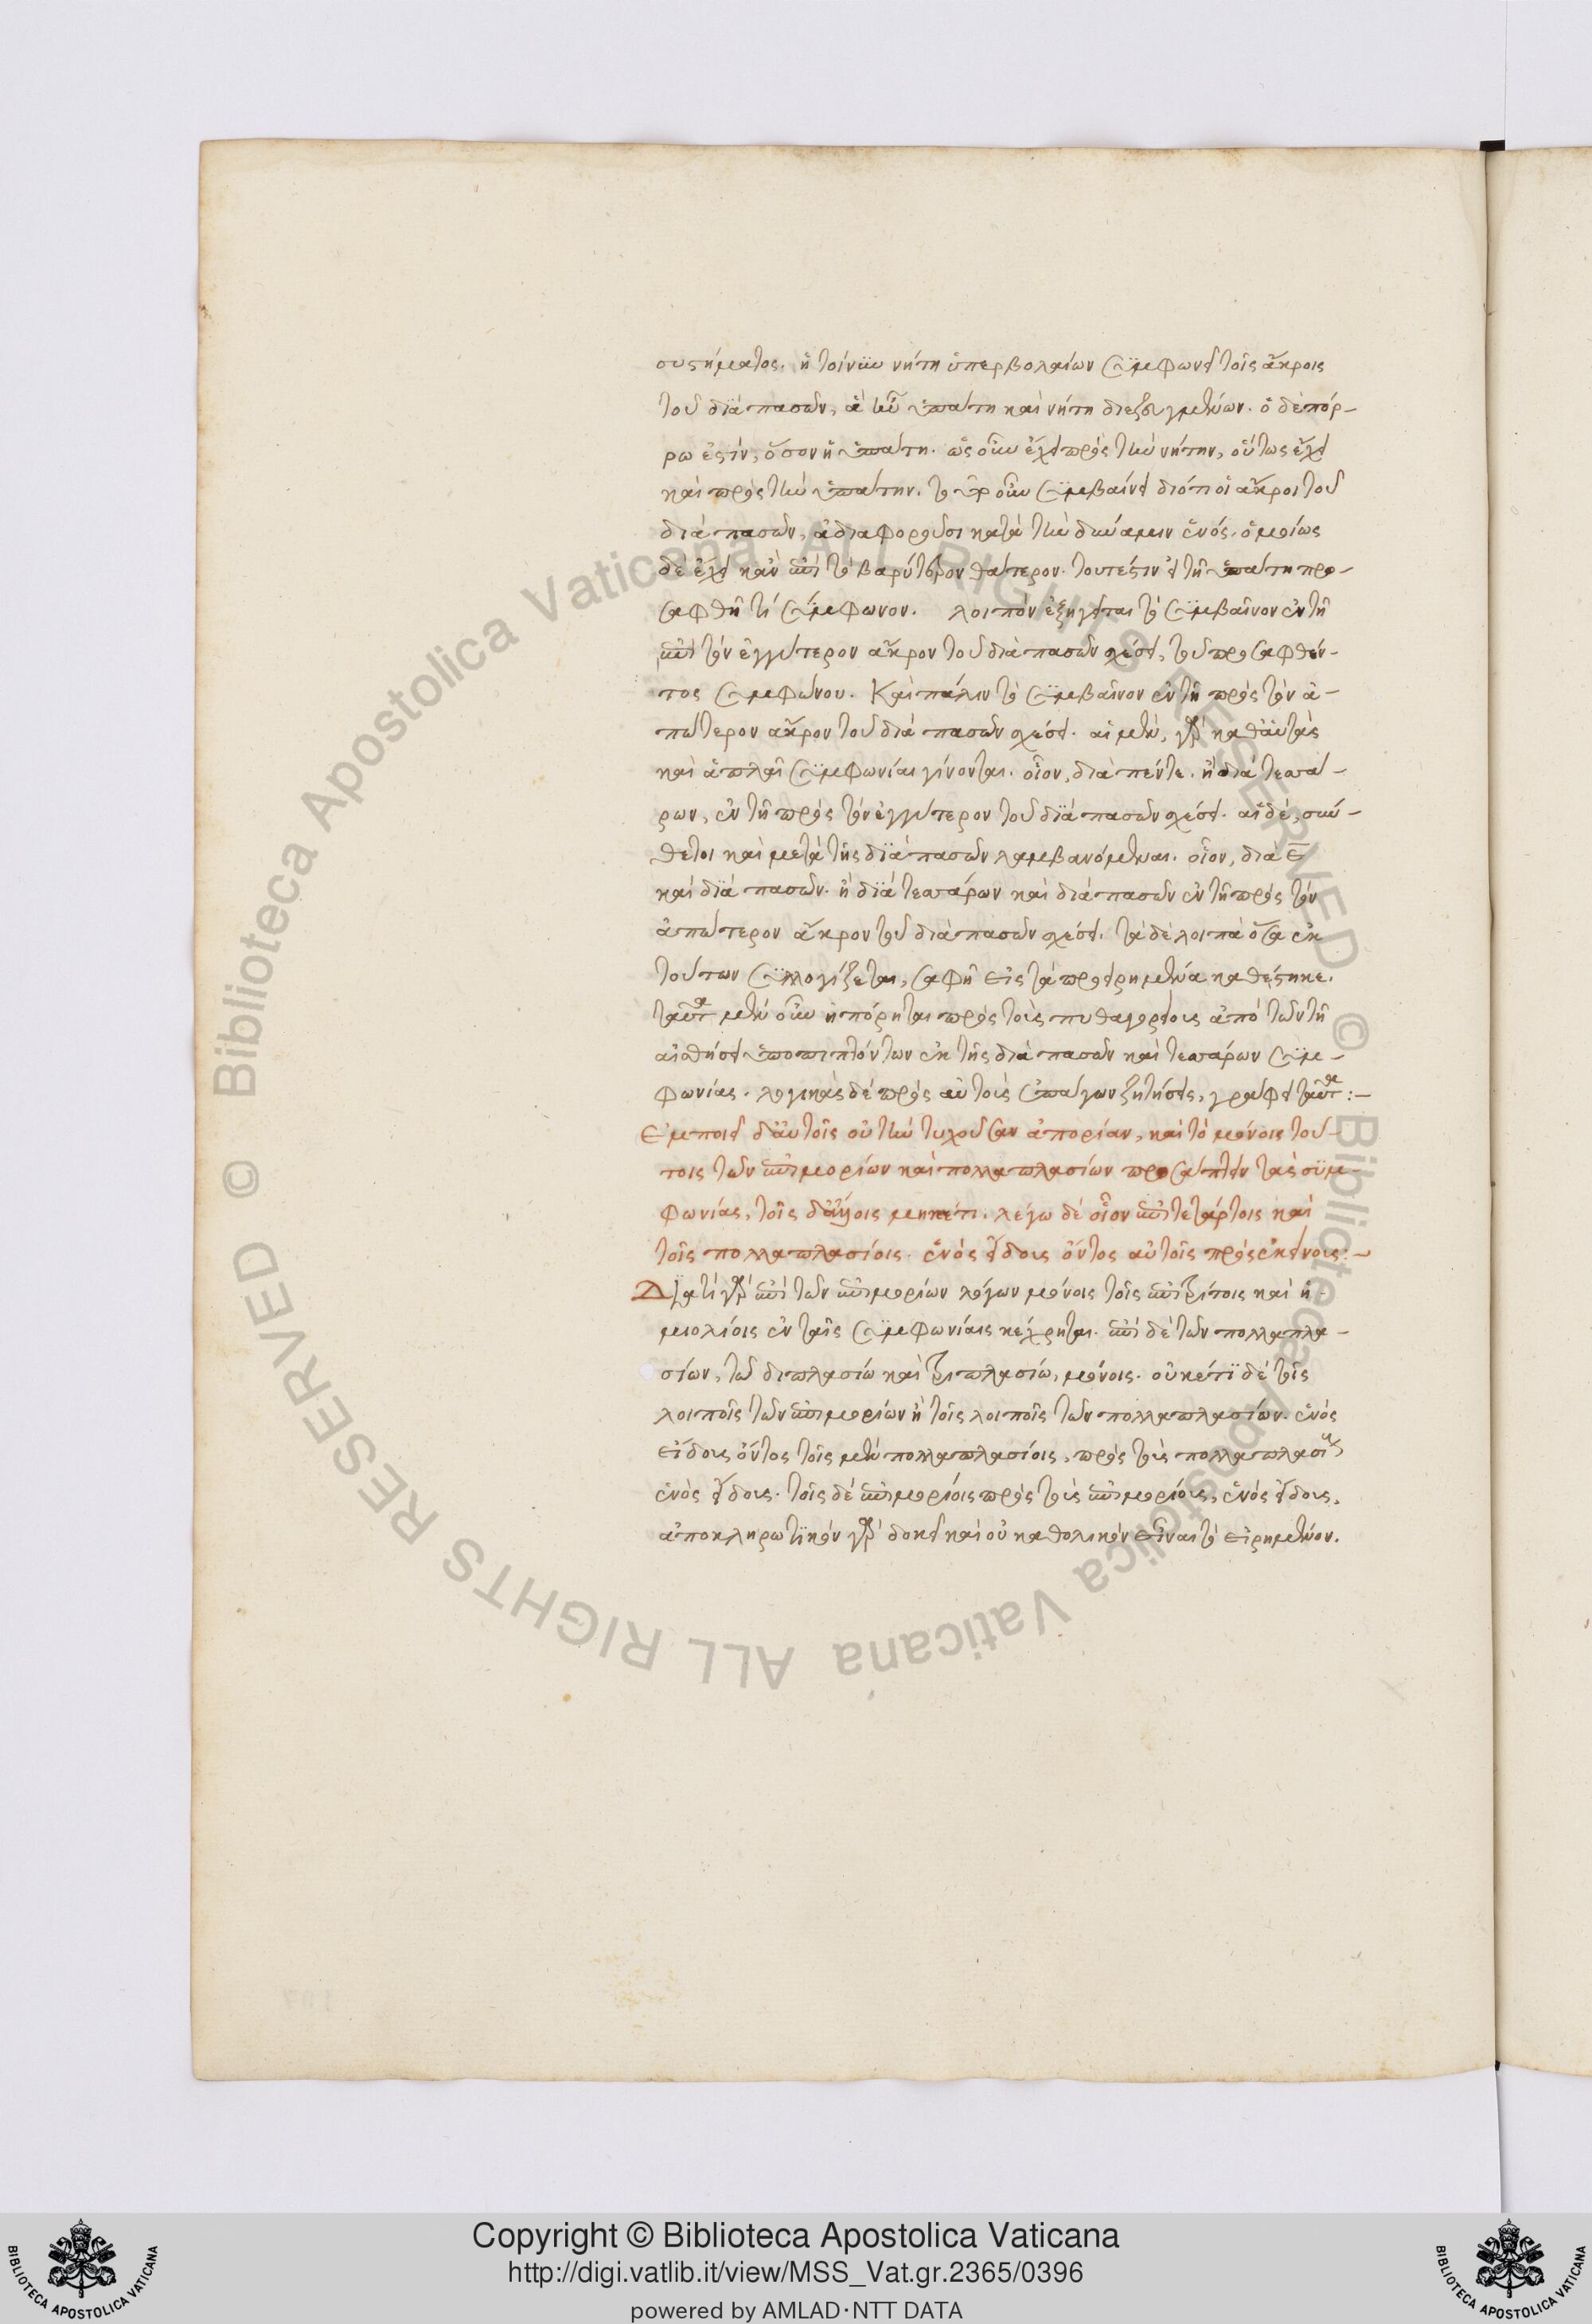 συστήματος. ἡ τοίνυν νήτη ὑπερβολαίων συμφωνεῖ τοῖς ἄκροις
τοῦ διὰ πασῶν, ἃ ἦν ὑπάτη καὶ νήτη διεζευγμένων. ὁ δὲ πόρ-
ρω ἐστίν, ὅσον ἡ ὑπάτη. ὡς οὖν ἔχει πρὸς τὴν νήτην, οὕτως ἔχει
καὶ πρὸς τὴν ὑπάτην. τοῦτο οὖν συμβαίνει διότι οἱ ἄκροι τοῦ
διὰ πασῶν, ἀδιαφοροῦσι κατὰ τὴν δύναμιν ἑνός. ὁμοίως
δὲ ἔχει κἂν ἐπὶ τὸ βαρύτερον θάτερον. τουτέστιν εἰ τῇ ὑπάτῃ προ-
σαφθῇ τί σύμφωνον. λοιπὸν ἐξηγεῖται τὸ συμβαῖνον ἐν τῇ
ἐπὶ τὸν ἐγγύτερον ἄκρον τοῦ διὰ πασῶν σχέσει, τοῦ προσαφθέν-
τος συμφώνου. Καὶ πάλιν τὸ συμβαῖνον ἐν τῇ πρὸς τὸν ἀ-
πώτερον ἄκρον τοῦ διὰ πασῶν σχέσει. αἱ μὲν, γὰρ καθ' αὑτὰς
καὶ ἁπλαῖ συμφωνίαι γίνονται. οἷον, διὰ πέντε. ἢ διὰ τεσσά-
ρων, ἐν τῇ πρὸς τὸν ἐγγύτερον τοῦ διὰ πασῶν σχέσει. αἱ δὲ, σύν-
θετοι καὶ μετὰ τῆς διὰ πασῶν λαμβανόμεναι. οἷον, διὰ ε̅
καὶ διὰ πασῶν. ἢ διὰ τεσσάρων καὶ διὰ πασῶν ἐν τῇ πρὸς τὸν
ἀπώτερον ἄκρον τοῦ διὰ πασῶν σχέσει. τὰ δὲ λοιπὰ ὅσα ἐκ
τούτων συλλογίζεται, σαφῆ εἰς τὰ προειρημένα καθέστηκε.
ταῦτα μὲν οὖν ἠπόρηται πρὸς τοὺς πυθαγορείους ἀπὸ τῶν τῇ
αἰσθήσει ὑποπιπτόντων ἐκ τῆς διὰ πασῶν καὶ τεσσάρων συμ-
φωνίας. λογικὰς δὲ πρὸς αὐτοὺς ἐπάγων ζητήσεις, γράφει ταῦτα:-
Ἐμποιεῖ δ' αὐτοῖς οὐ τὴν τυχοῦσαν ἀπορίαν, καὶ τὸ μόνοις τού-
τοις τῶν ἐπιμορίων καὶ πολλαπλασίων προσάπτειν τὰς συμ-
φωνίας, τοῖς δ' ἄλλοις μηκέτι. λέγω δὲ οἷον ἐπιτετάρτοις καὶ
τοῖς πολλαπλασίοις. ἑνὸς εἴδους ὄντος αὐτοῖς πρὸς ἐκείνους:-
Διατί γὰρ ἐπὶ τῶν ἐπιμορίων λόγων μόνοις τοῖς ἐπιτρίτοις καὶ ἡ-
μιολίοις ἐν ταῖς συμφωνίαις κέχρηται. ἐπὶ δὲ τῶν πολλαπλα-
σίων, τῷ διπλασίῳ καὶ τριπλασίῳ, μόνοις. οὐκέτι δὲ τοῖς
λοιποῖς τῶν ἐπιμορίων ἢ τοῖς λοιποῖς τῶν πολλαπλασίων. ἑνὸς
εἴδους ὄντος τοῖς μὲν πολλαπλασίοις, πρὸς τοὺς πολλαπλασίους
ἑνὸς εἴδους. τοῖς δὲ ἐπιμορίοις πρὸς τοὺς ἐπιμορίους, ἑνὸς εἴδους.
ἀποκληρωτικὸν γὰρ δοκεῖ καὶ οὐ καθολικὸν εἶναι τὸ εἰρημένον.
© Biblioteca Apostolica Vaticana ALL RIGHTS RESERVED © Biblioteca Apostolica Vaticana ALL RIGHTS RESERVED
BIBLIOTECA APOSTOLICA VATICANA
Copyright © Biblioteca Apostolica Vaticana
http://digi.vatlib.it/view/MSS_Vat.gr.2365/0396
powered by AMLAD·NTT DATA
BIBLIOTECA APOSTOLICA VATICANA